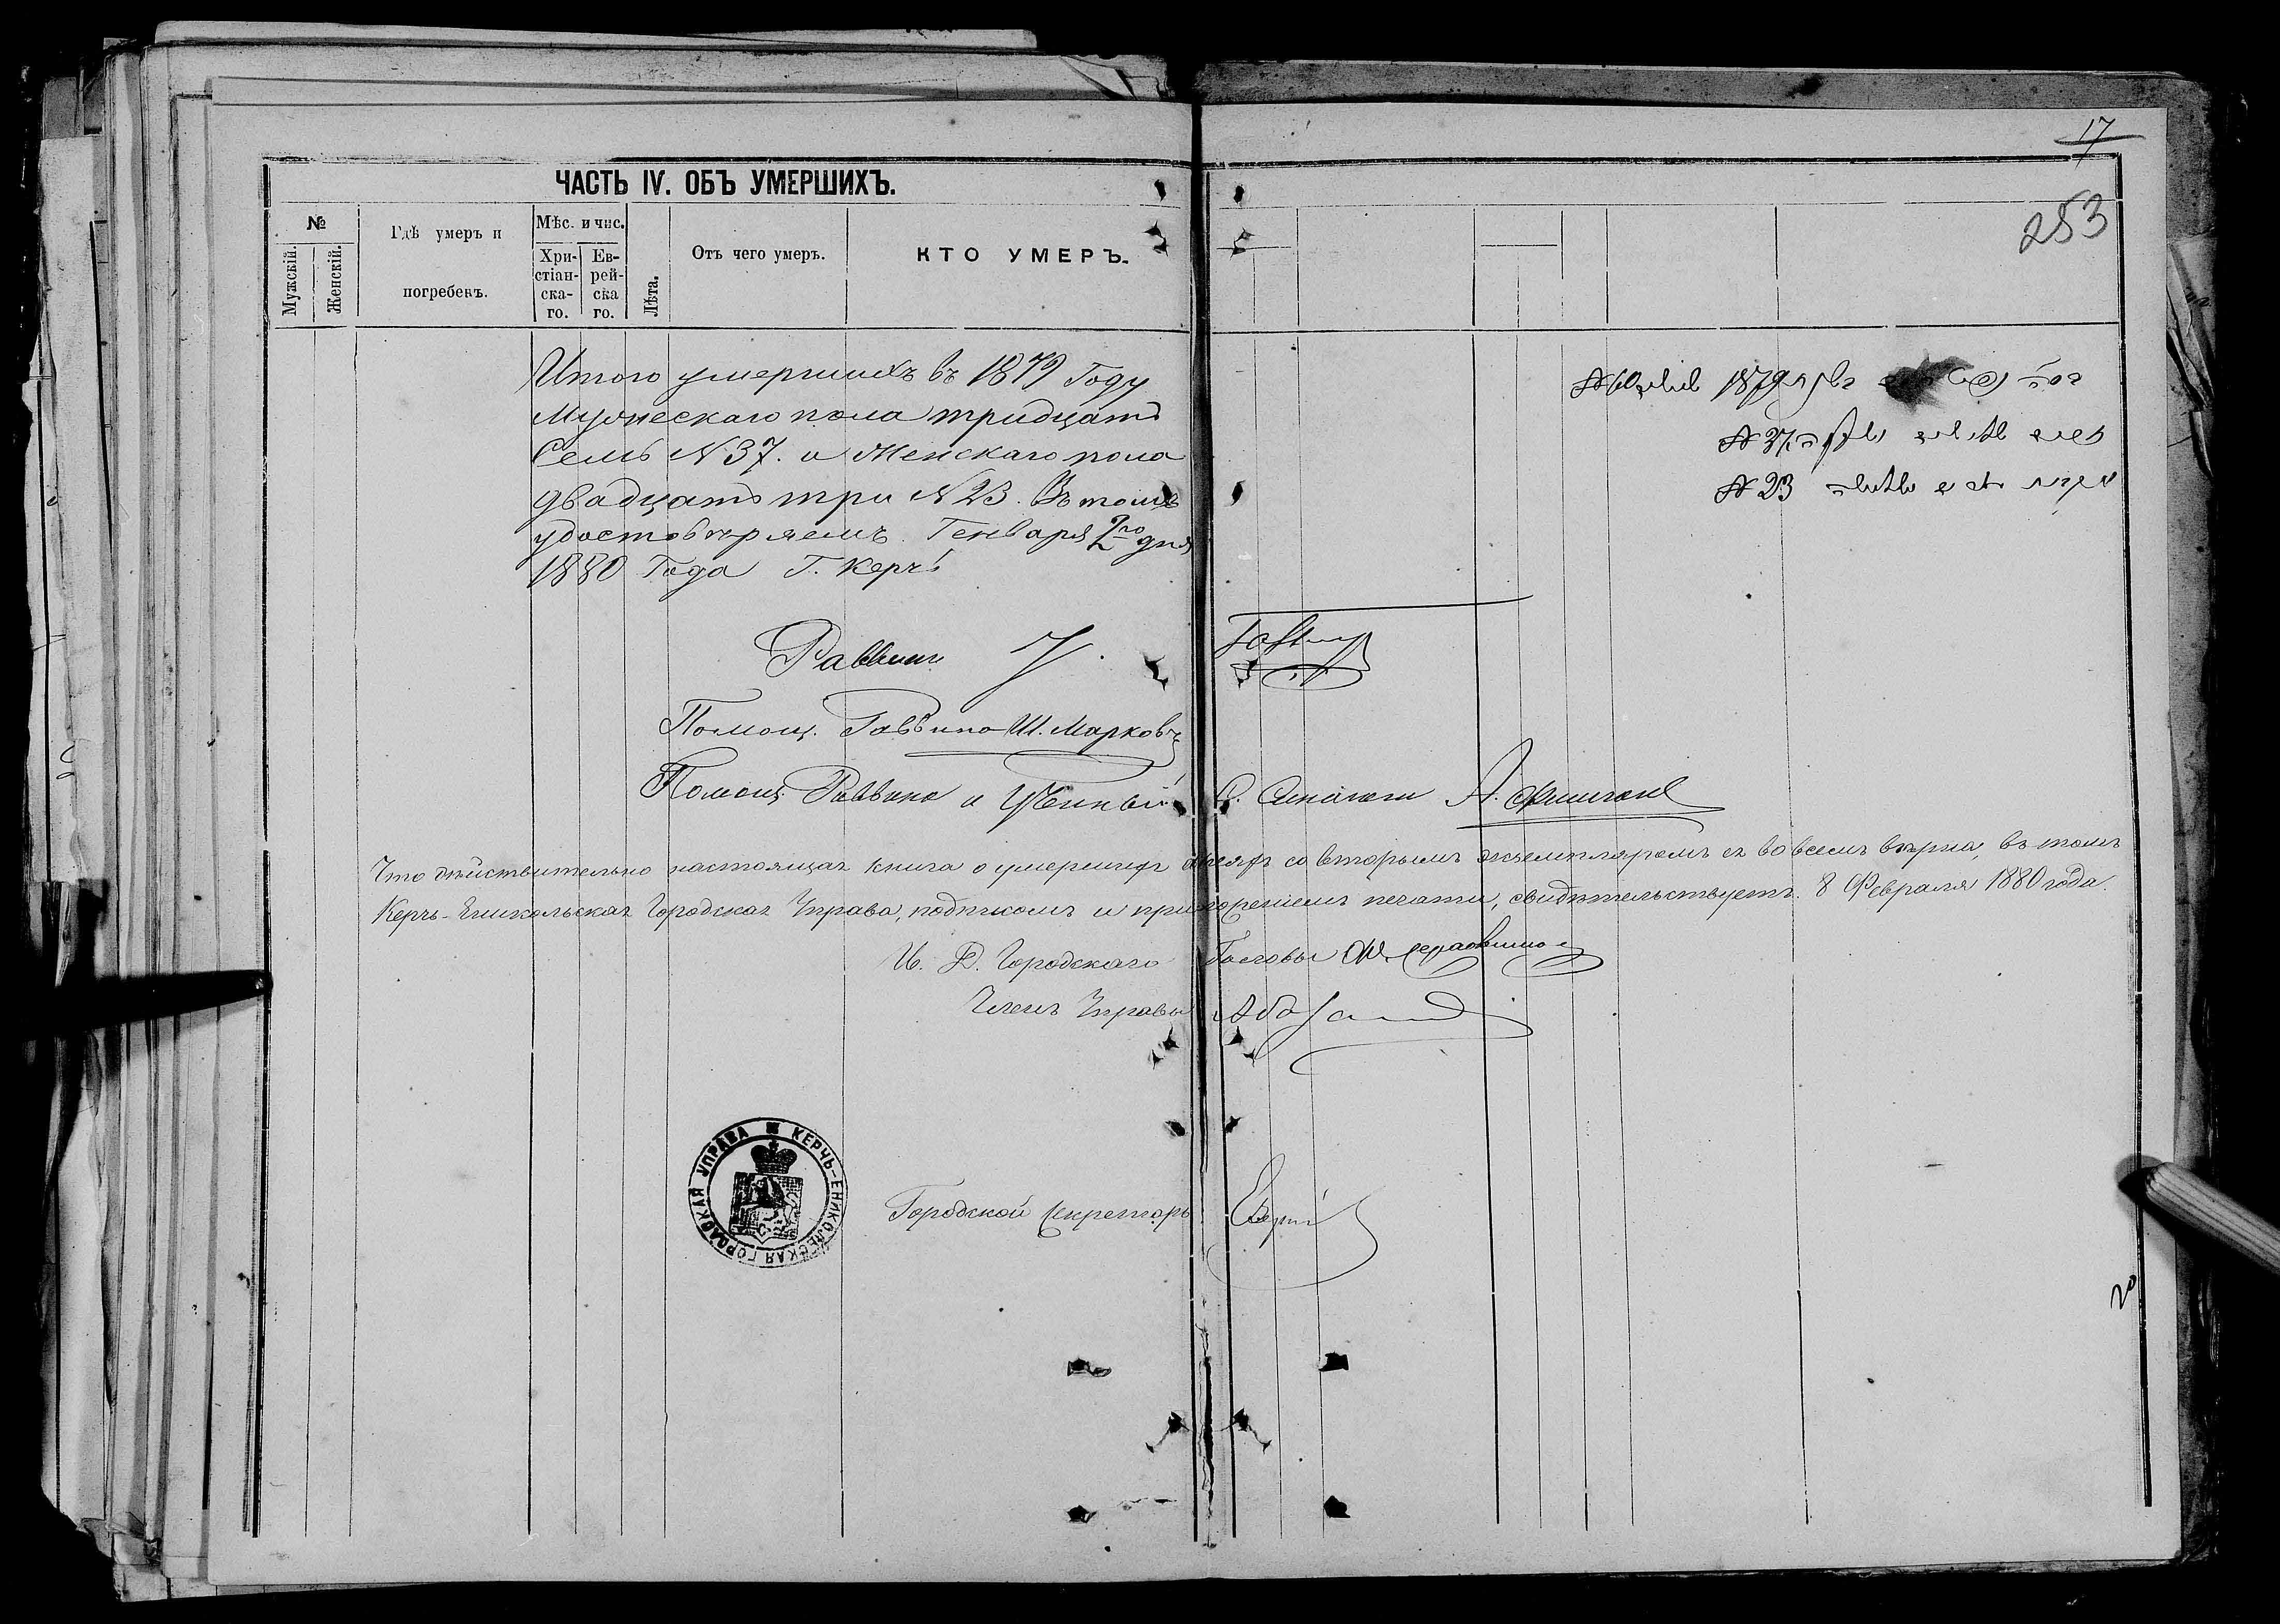 17
253
ЧАСТЬ IV. ОБЪ УМЕРШИХЪ.
№
Мужскій.
Женскій.
Гдѣ умеръ и
погребенъ.
Мѣс. и чис.
Хри-
стіан-
ска-
го.
Ев-
рей-
ска
го.
Лѣта.
Отъ чего умеръ.
КТО УМЕРЪ.
Итого умершихъ въ 1879 Году
Мужескаго пола тридцать
Семь N 37. и Женскаго пола
двадцать три N 23. Въ томъ
удостовѣряемъ. Генваря 2го дня
1880 Года Г. Керчь
1879
N 37
N 23
Раввинъ
Помощ. Раввина Ш. Марковъ
Помощ. Раввина и Ученый
Что дѣйствительно настоящая книга о умершихъ со вторымъ экземпляромъ во всемъ вѣрна, въ томъ
Керчь-Еникольская Городская Управа, подписомъ и приложеніемъ печати, свидѣтельствуетъ. 8 Февраля 1880 года.
И. Д. Городскаго Головы
Членъ Управы
КЕРЧЬ-ЕНИКОЛЬСКАЯ ГОРОДСКАЯ УПРАВА
Городской секретарь
20